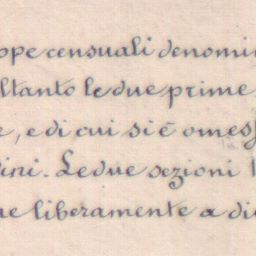 ope censuali denomi
ltanto le due prime
e, e di cui si è omess
ini. Le due sezioni
ue liberamente a di